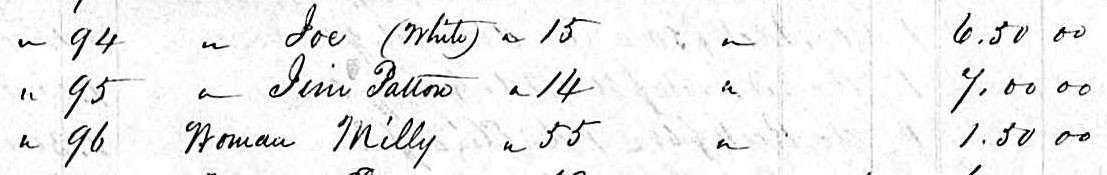 " 94 " Joe (White) " 15 " 6.50 00
" 95 " Jim Patton " 14 " 7.00 00
" 96 Woman Milly " 55 " 1.50 00